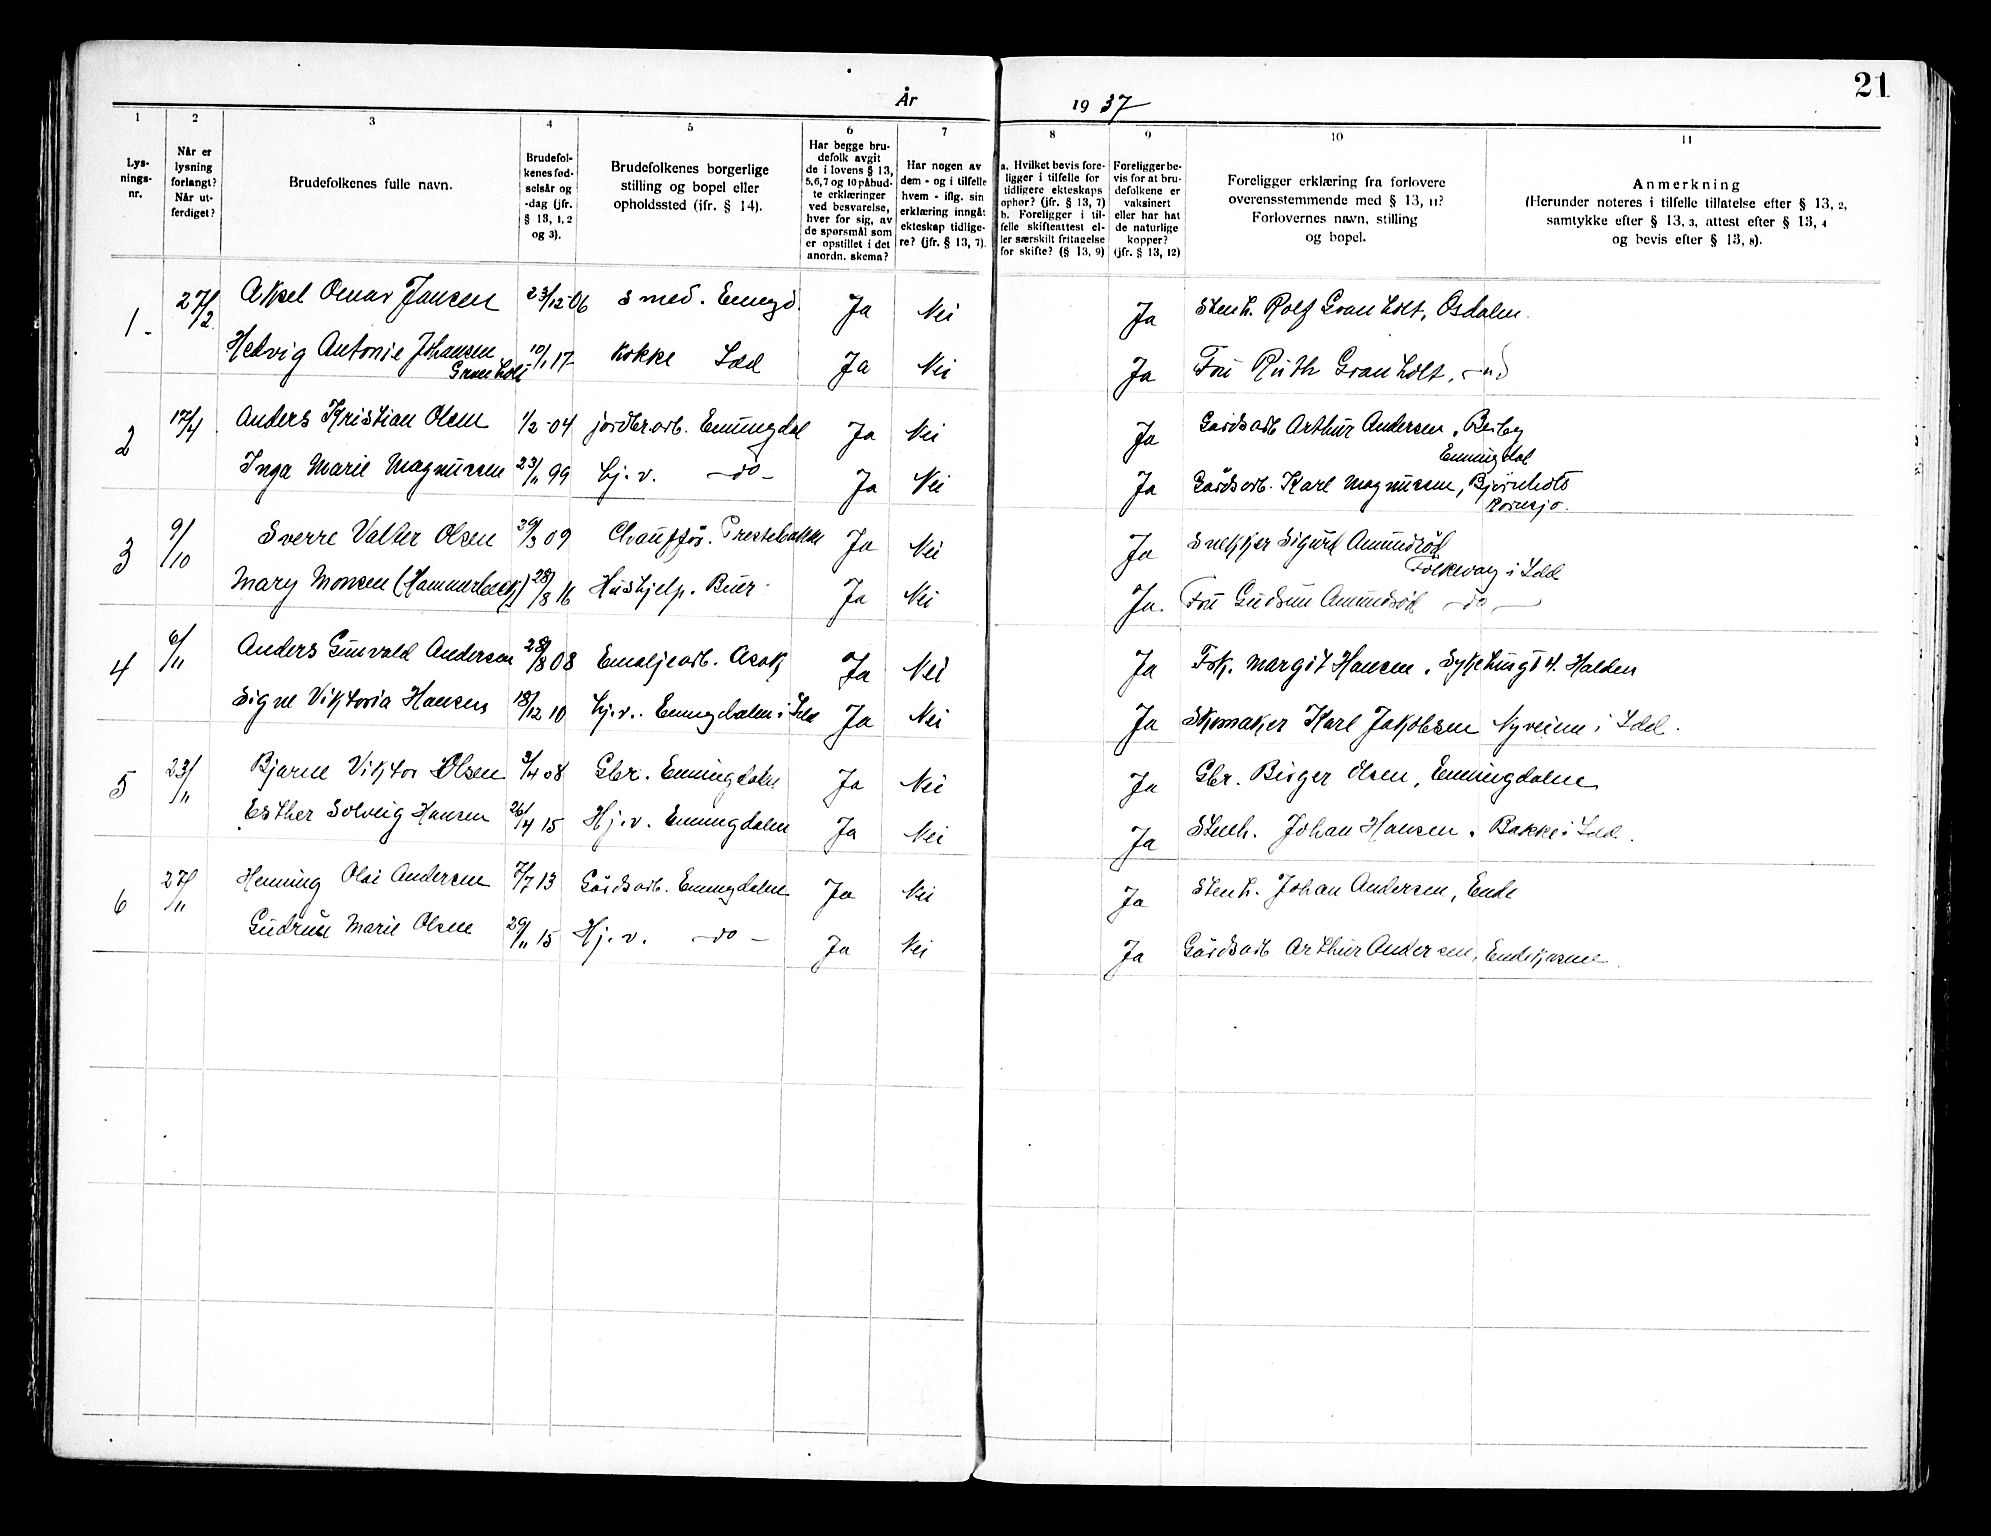 21
År 1937
1 2 3 4 5 6 7 8 9 10 11
Lys-
nings-
nr.
Når er
lysning
forlangt?
Når ut-
ferdiget?
Brudefolkenes fulle navn.
Brudefol-
kenes fød-
selsår og
-dag (jfr.
§ 13, 1, 2
og 3).
Brudefolkenes borgerlige
stilling og bopel eller
opholdssted (jfr. § 14).
Har begge bru-
defolk avgit
de i lovens § 13,
5,6,7 og 10 påbud-
te erklæringer
ved besvarelse,
hver for sig, av
de spørsmål som
er opstillet i det
anordn. skema?
Har nogen av
dem - og i tilfelle
hvem - iflg. sin
erklæring inngåt
ekteskap tidlige-
re? (jfr. § 13, 7).
a. Hvilket bevis fore-
ligger i tilfelle for
tidligere ekteskaps
ophør? (jfr. § 13, 7)
b. Foreligger i til-
felle skifteattest el-
ler særskilt fritagelse
for skifte? (§ 13, 9)
Foreligger be-
vis for at bru-
defolkene er
vaksinert
eller har hat
de naturlige
kopper?
(jfr. § 13, 12)
Foreligger erklæring fra forlovere
overensstemmende med § 13, 11?
Forlovernes navn, stilling
og bopel.
Anmerkning
(Herunder noteres i tilfelle tillatelse efter § 13, 2,
samtykke efter § 13, 3, attest efter § 13, 4
og bevis efter § 13, 8).
1. 27/2 Aksel Omar Jansen 23/12-06 Smed. Enngd. Ja Nei Ja Stenh. Rolf Granholt, Osdalen.
Hedvig Antonie Johansen 10/1 17 Kokke Idd Ja Nei Ja Fru Ruth Granholt,
Granholt
2 17/4 Anders Kristian Olsen 1/2-04 jordbr.arb. Enningdal Ja Nei Ja Gårdsarb Arthur Andersen, Berby
Enningdal
Inga Marie Magnussen 23/11 99 hj. v. -do- Ja Nei Ja Gårdsarb. Karl Magnussen, Bjørnholt
Kornsjø.
3 9/10 Sverre Valter Olsen 30/3 09 Chauffør. Prestebakke Ja Nei Ja Snekker Sigurd Amundrød
Folkevang i Idd
Mary Monsen (Hammerbeck) 28/8 16 Hushjelp. Buer. Ja Nei Ja. Fru Gudrun Amundrød -do-
4 6/11 Anders Gunvald Andersen 28/8 08 Emaljearb. Asak Ja Nei Ja Frk. Margit Hansen. Sykehusgt 4. Halden
Signe Viktoria Hansen 18/12 10 hj. v. Enningdalen i Idd Ja Nei Ja Skomaker Karl Jakobsen Nyveien i Idd.
5 23/11 Bjarne Viktor Olsen 3/4 08 Gbr. Enningdalen Ja Nei Ja Gbr. Birger Olsen, Enningdalen
Esther Solveig Hansen 26/4 15 Hj. v. Enningdalen Ja Nei Ja Stenh. Johan Hansen. Bakke i Idd.
6 27/11 Henning Olai Andersen 7/7 13 Gårdsarb. Enningdalen Ja Nei Ja Stenh. Johan Andersen, Ende
Gudrun Marie Olsen 29/11 15 Hj. v. -do- Ja Nei Ja Gårdsarb Arthur Andersen, Endekjærne.